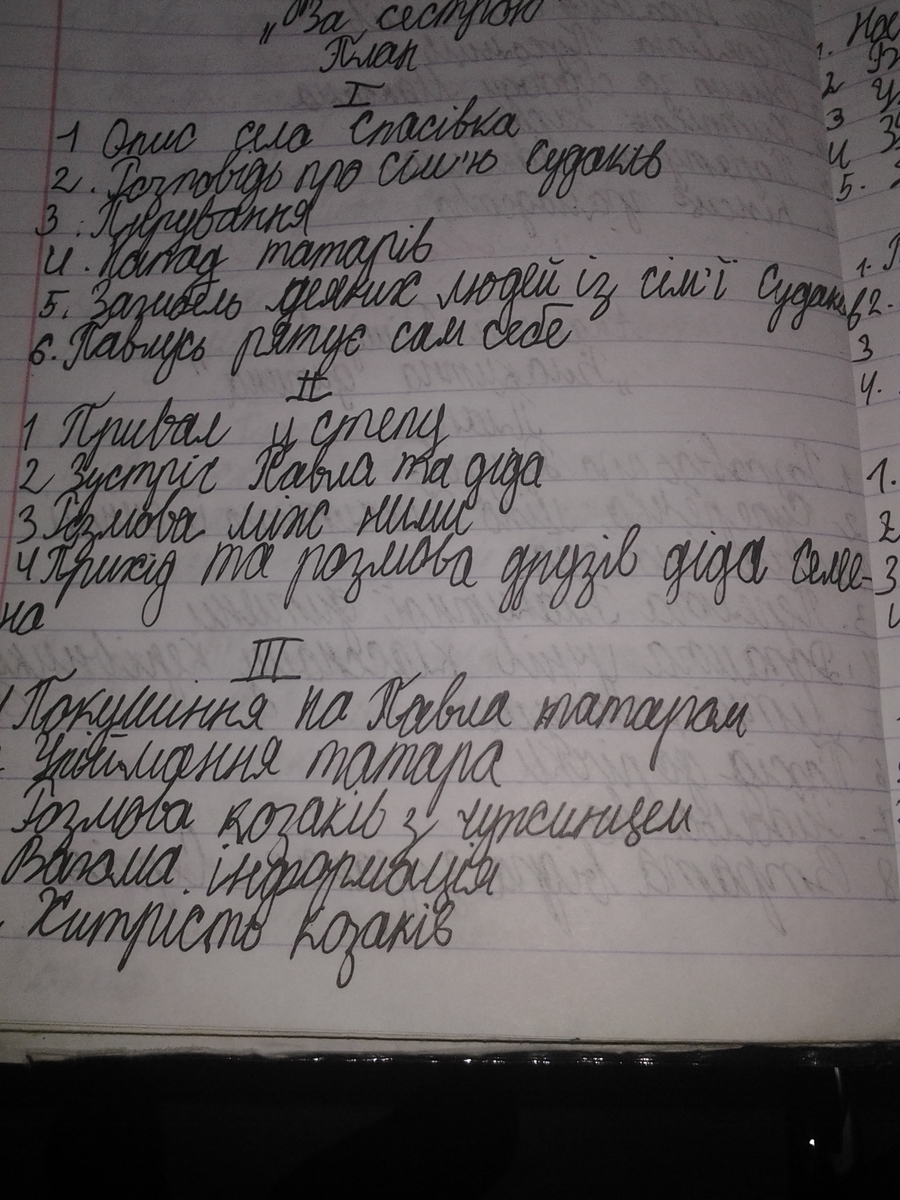 „За сестрою"
План
I
1 Опис села Спасівка
2. Розповідь про сім'ю Судаків
3. Пирування
4. Напад татарів
5. Загибель деяких людей із сім'ї Судаків
6. Павлусь рятує сам себе
II
1 Привал у степу
2 Зустріч Павла та діда
3 Розмова між ними
4 Прихід та розмова друзів діда
на
III
Покушіння на Павла татаром
Уиймання татара
Розмова козаків з чужинцем
Вагома інформація
Хитрість козаків
1.
2
3
4
5.
1.
2.
3
4.
1.
2
3